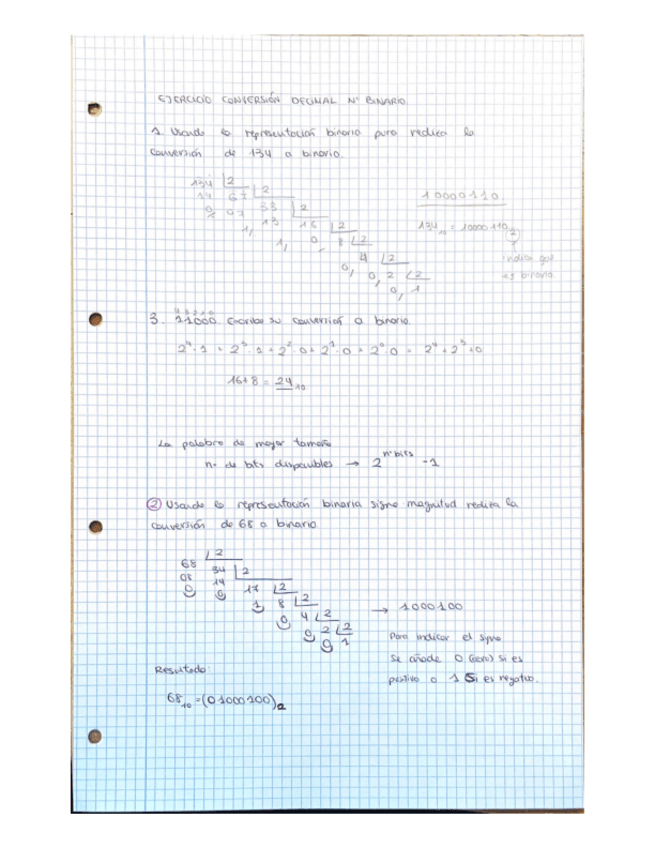 EJERCICIO CONVERSIÓN DECIMAL Nº BINARIO.
1. Usando la representación binaria pura realiza la
conversión de 134 a binario.
134 |2
14 67 |2
0 07 33 |2
1 13 16 |2
1 0 8 |2
0 4 |2
0 2 |2
0 1
10000110
134₁₀ = 10000110₂
indica que
es binario
4 3 2 1 0
3. 11000. Escribe su conversión a binario
2⁴·1 + 2³·1 + 2²·0 + 2¹·0 + 2⁰·0 = 2⁴+2³+0
16+8 = 24₁₀
La palabra de mayor tamaño
nº de bits disponibles → 2^nº bits -1
② Usando la representación binaria signo magnitud realiza la
conversión de 68 a binario
68 |2
08 34 |2
0 14 17 |2
0 1 8 |2
0 4 |2
0 2 |2
0 1
→ 1000100
Para indicar el signo
se añade 0 (cero) si es
positivo o 1 si es negativo.
Resultado:
68₁₀ = (01000100)₂